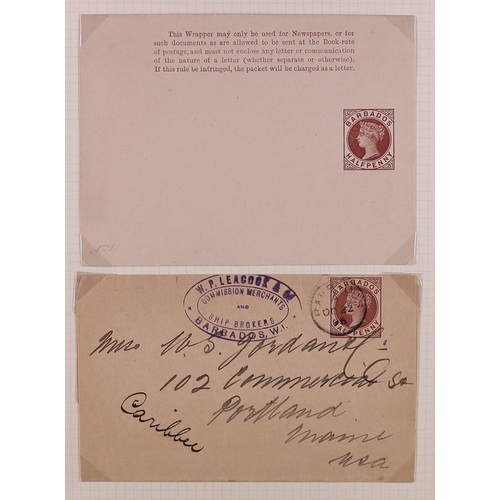 This Wrapper may only be used for Newspapers, or for
such documents as are allowed to be sent at the Book-rate
of postage, and must not enclose any letter or communication
of the nature of a letter (whether separate or otherwise).
If this rule be infringed, the packet will be charged as a letter.
BARBADOS
HALFPENNY
W. P. LEACOCK & Co
COMMISSION MERCHANTS
AND
SHIP BROKERS
BARBADOS, W.I.
BARBADOS
HALFPENNY
DE 22
Mess W. S. Jordan & Co
102 Commercial St
Portland
Maine
USA
Caribbee